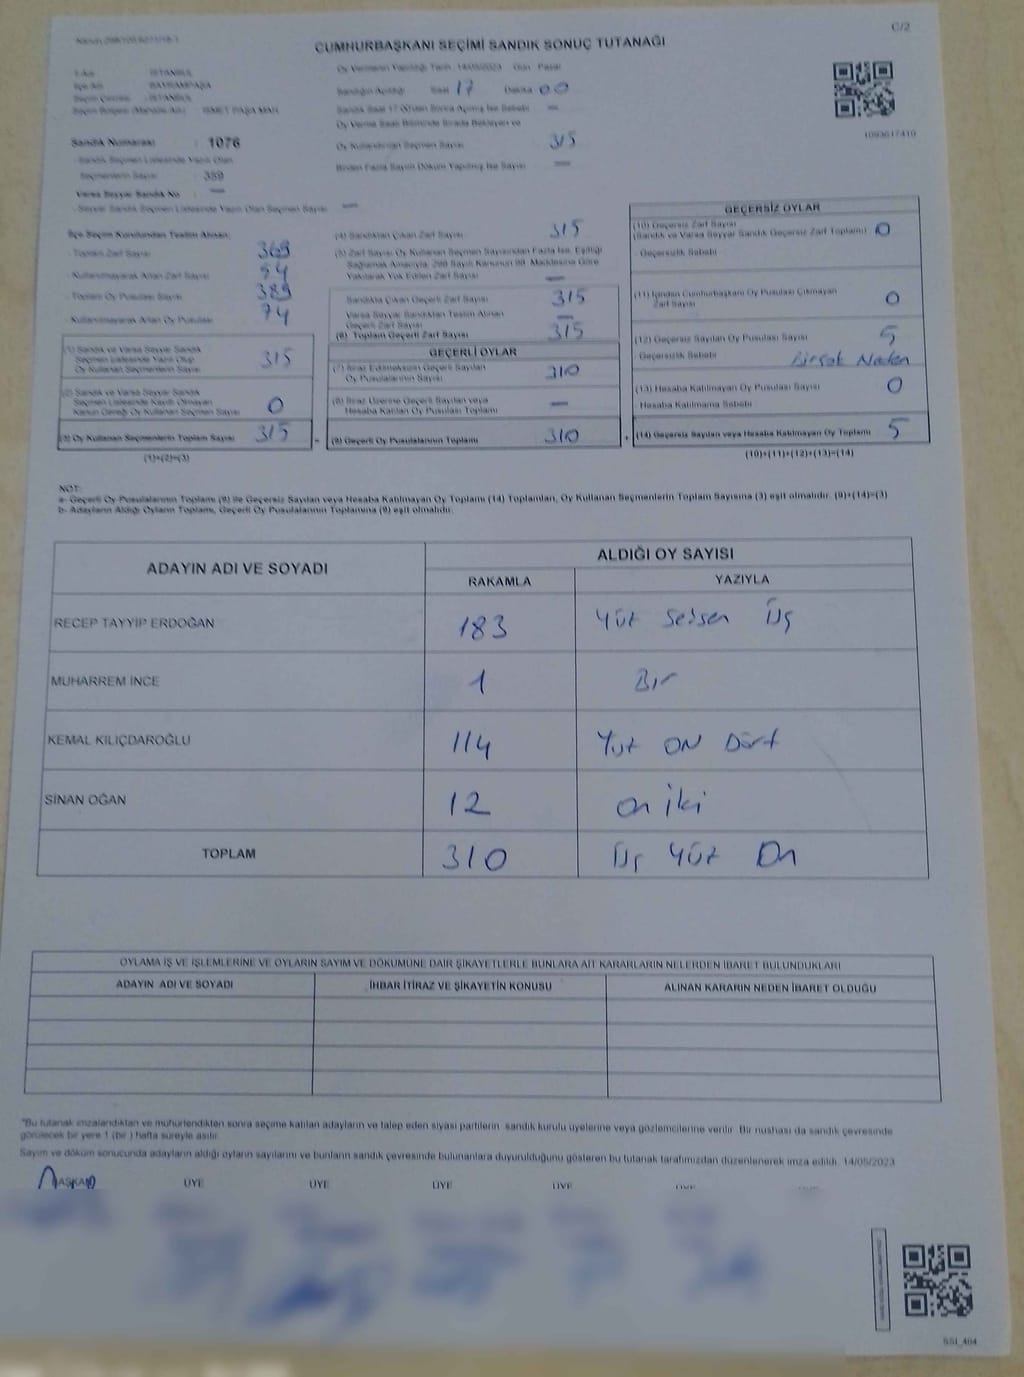 C/2
CUMHURBAŞKANI SEÇİMİ SANDIK SONUÇ TUTANAĞI
Oy Vermenin Yapıldığı Tarih : 14/05/2023 Gün : Pazar
İSTANBUL
BAYRAMPAŞA
İSTANBUL
Sandığın Açıldığı Saat 17 Dakika 00
Sandık Saat 17:00'den Sonra Açılmış İse Sebebi —
1093617410
Oy Kullandırılan Seçmen Sayısı 315
Birden Fazla Sayım Döküm Yapılmış İse Sayısı —
Sandık Numarası : 1076
- Sandık Seçmen Listesinde Yazılı Olan
Seçmenlerin Sayısı
Varsa Seyyar Sandık No : —
- Seyyar Sandık Seçmen Listesinde Yazılı Olan Seçmen Sayısı —
İlçe Seçim Kurulundan Teslim Alınan;
- Toplam Zarf Sayısı
- Kullanılmayarak Artan Zarf Sayısı
- Toplam Oy Pusulası Sayısı
- Kullanılmayarak Artan Oy Pusulası 74
(1) Sandık ve Varsa Seyyar Sandık
Seçmen Listesinde Yazılı Olup
Oy Kullanan Seçmenlerin Sayısı 315
(2) Sandık ve Varsa Seyyar Sandık
Seçmen Listesinde Kayıtlı Olmayan
Kanun Gereği Oy Kullanan Seçmen Sayısı 0
(3) Oy Kullanan Seçmenlerin Toplam Sayısı 315
(1)+(2)=(3)
(4) Sandıktan Çıkan Zarf Sayısı 315
(5) Zarf Sayısı Oy Kullanan Seçmen Sayısından Fazla İse, Eşitliği
Sağlamak Amacıyla, 298 Sayılı Kanunun 98. Maddesine Göre
Yakılarak Yok Edilen Zarf Sayısı —
Sandıkta Çıkan Geçerli Zarf Sayısı 315
Varsa Seyyar Sandıktan Teslim Alınan
Geçerli Zarf Sayısı —
(6) Toplam Geçerli Zarf Sayısı 315
GEÇERLİ OYLAR
(7) İtiraz Edilmeksizin Geçerli Sayılan
Oy Pusulalarının Sayısı 310
(8) İtiraz Üzerine Geçerli Sayılan veya
Hesaba Katılan Oy Pusulası Toplamı —
(9) Geçerli Oy Pusulalarının Toplamı 310
GEÇERSİZ OYLAR
(10) Geçersiz Zarf Sayısı
(Sandık ve Varsa Seyyar Sandık Geçersiz Zarf Toplamı) 0
Geçersizlik Sebebi
(11) İçinden Cumhurbaşkanı Oy Pusulası Çıkmayan
Zarf Sayısı 0
(12) Geçersiz Sayılan Oy Pusulası Sayısı 5
Geçersizlik Sebebi Birçok Neden
(13) Hesaba Katılmayan Oy Pusulası Sayısı 0
Hesaba Katılmama Sebebi
(14) Geçersiz Sayılan veya Hesaba Katılmayan Oy Toplamı 5
(10)+(11)+(12)+(13)=(14)
NOT:
a- Geçerli Oy Pusulalarının Toplamı (9) ile Geçersiz Sayılan veya Hesaba Katılmayan Oy Toplamı (14) Toplamları, Oy Kullanan Seçmenlerin Toplam Sayısına (3) eşit olmalıdır. (9)+(14)=(3)
b- Adayların Aldığı Oyların Toplamı, Geçerli Oy Pusulalarının Toplamına (9) eşit olmalıdır.
ADAYIN ADI VE SOYADI
ALDIĞI OY SAYISI
RAKAMLA YAZIYLA
RECEP TAYYİP ERDOĞAN 183 Yüz Seksen Üç
MUHARREM İNCE 1 Bir
KEMAL KILIÇDAROĞLU 114 Yüz ON Dört
SİNAN OĞAN 12 on iki
TOPLAM 310 Üç Yüz On
OYLAMA İŞ VE İŞLEMLERİNE VE OYLARIN SAYIM VE DÖKÜMÜNE DAİR ŞİKAYETLERLE BUNLARA AİT KARARLARIN NELERDEN İBARET BULUNDUKLARI
ADAYIN ADI VE SOYADI İHBAR İTİRAZ VE ŞİKAYETİN KONUSU ALINAN KARARIN NEDEN İBARET OLDUĞU
"Bu tutanak imzalandıktan ve mühürlendikten sonra seçime katılan adayların ve talep eden siyasi partilerin sandık kurulu üyelerine veya gözlemcilerine verilir. Bir nüshası da sandık çevresinde
görülecek bir yere 1 (bir ) hafta süreyle asılır.
Sayım ve döküm sonucunda adayların aldığı oyların sayılarını ve bunların sandık çevresinde bulunanlara duyurulduğunu gösteren bu tutanak tarafımızdan düzenlenerek imza edildi. 14/05/2023
BAŞKAN ÜYE ÜYE ÜYE ÜYE ÜYE